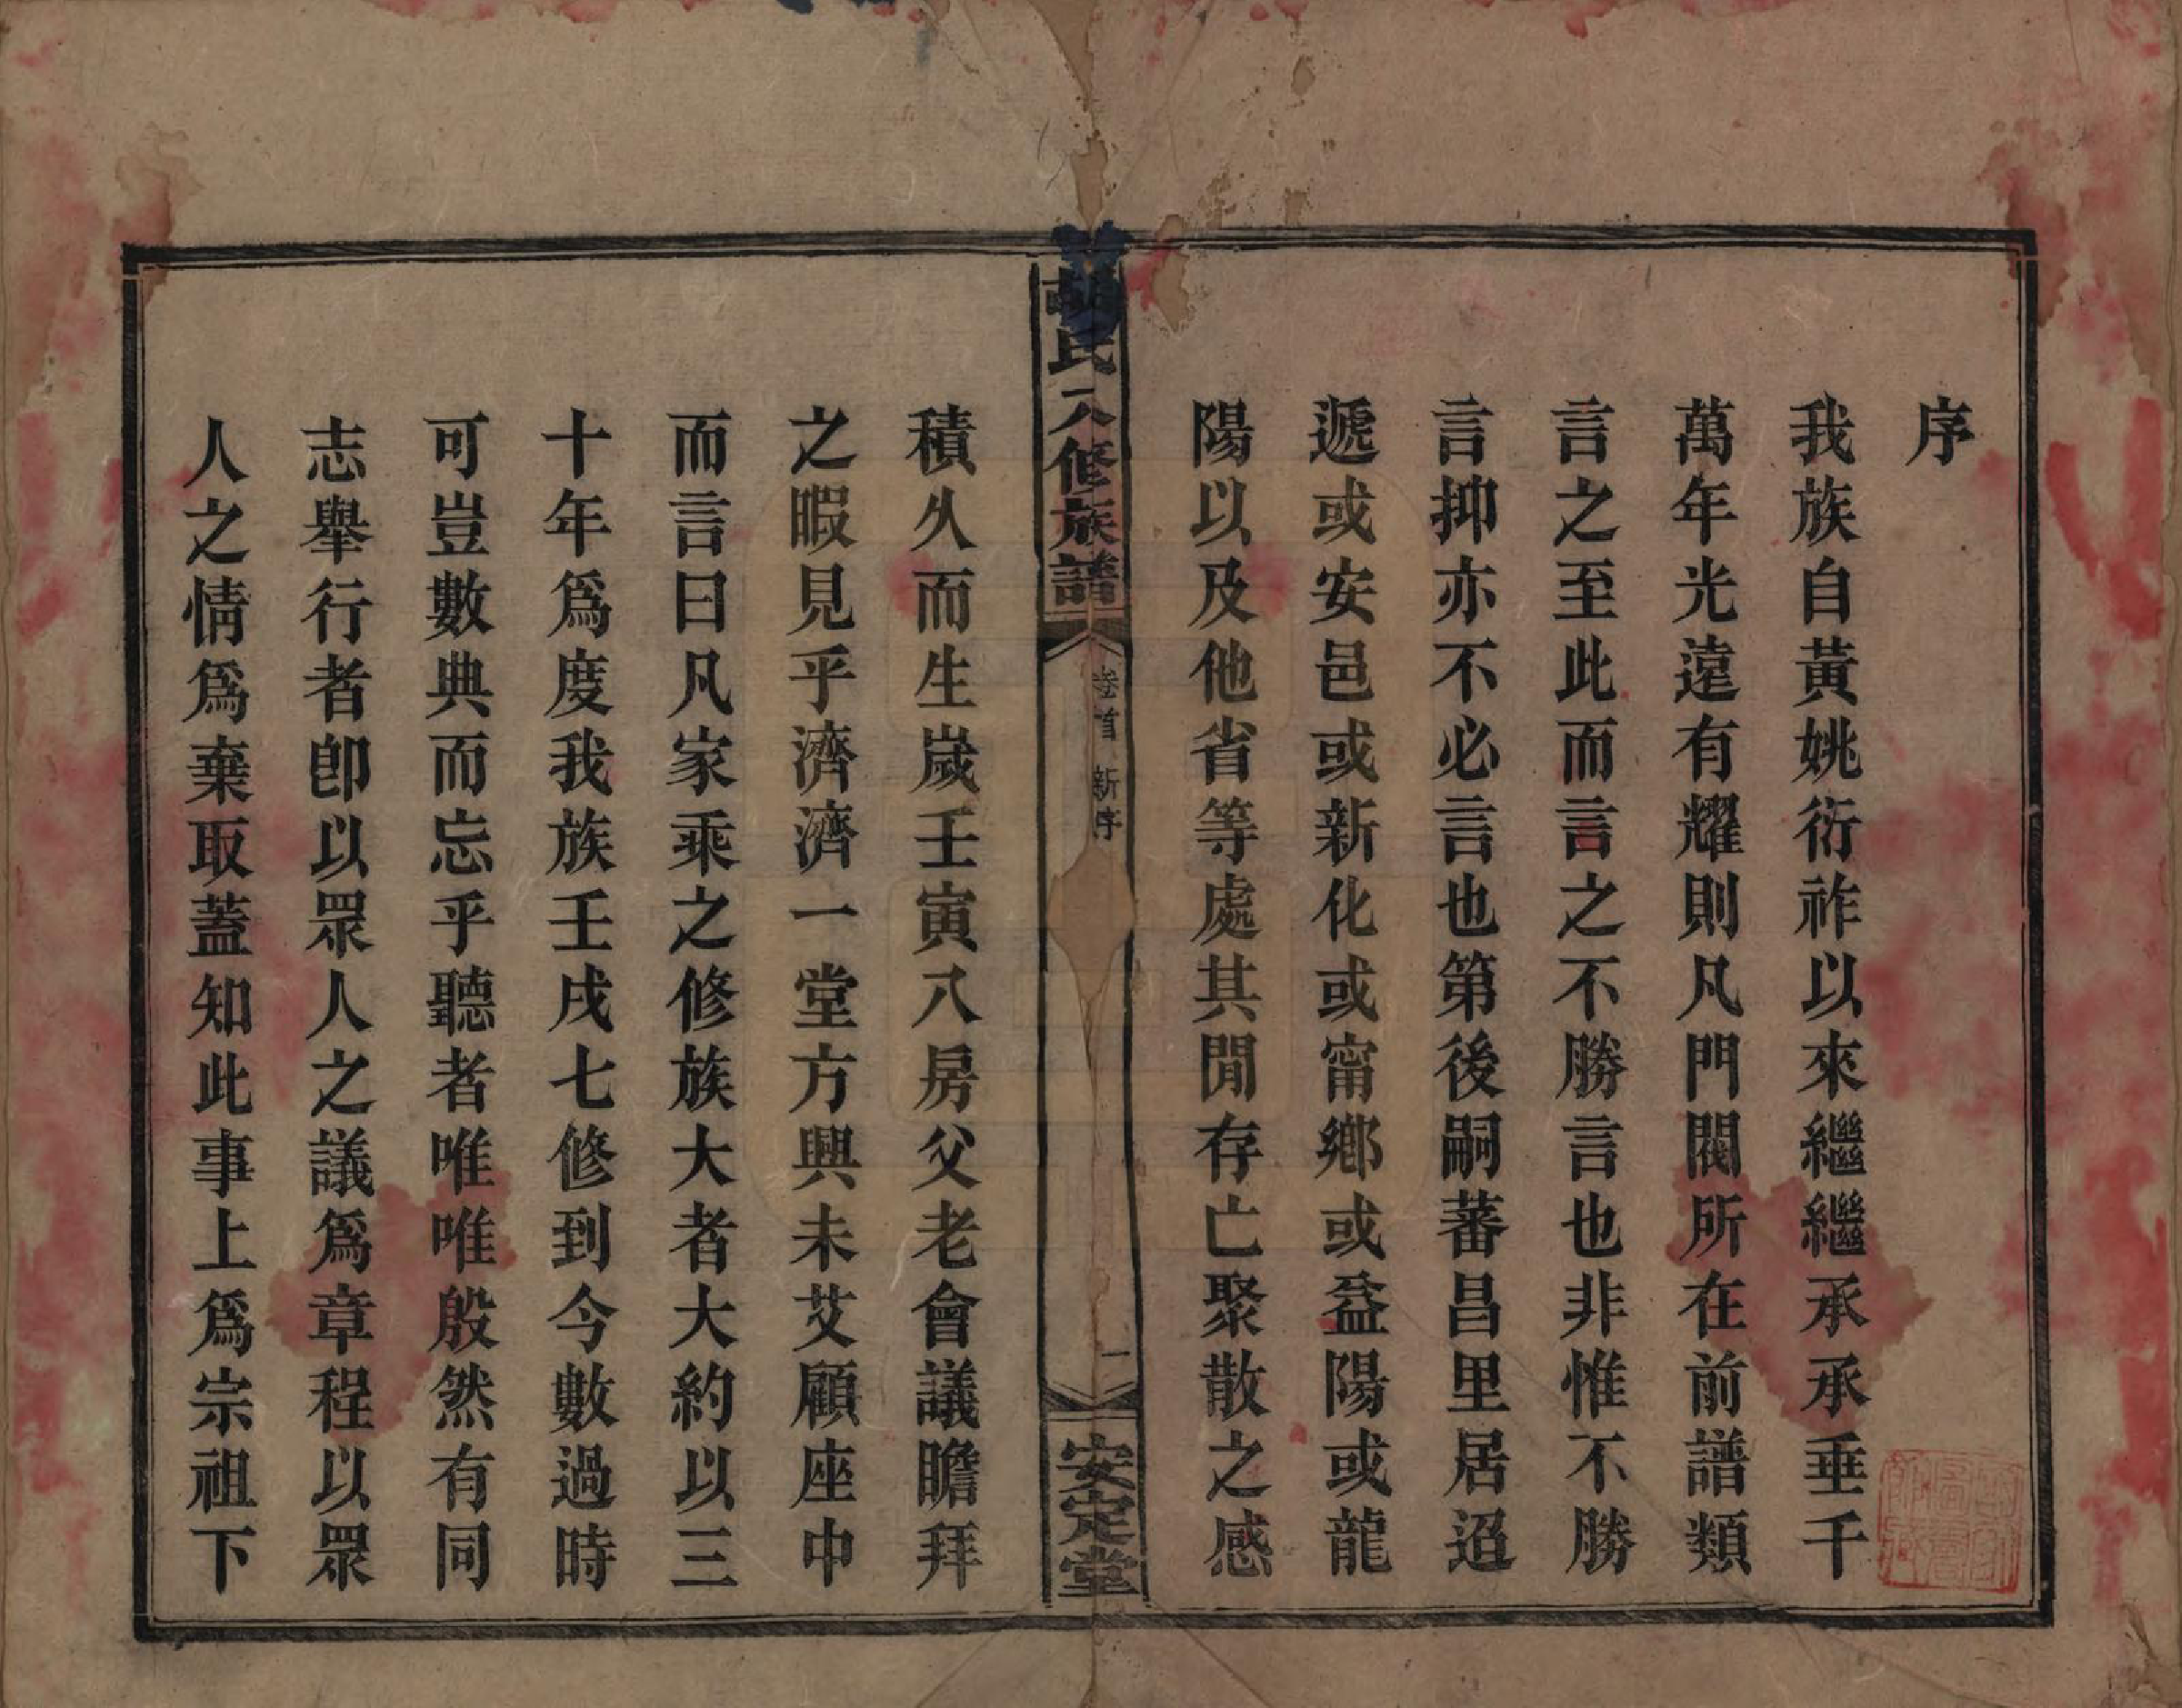 序
我族自黃姚衍祚以來繼繼承承垂千
萬年光遠有耀則凡門閥所在前譜類
言之至此而言之不勝言也非惟不勝
言抑亦不必言也第後嗣蕃昌里居迢
遞或安邑或新化或甯鄉或益陽或龍
陽以及他省等處其閒存亡聚散之感
胡氏八修族譜
卷首 新序
一
安定堂
積久而生歲壬寅八房父老會議瞻拜
之暇見乎濟濟一堂方興未艾顧座中
而言曰凡家乘之修族大者大約以三
十年爲度我族壬戌七修到今數過時
可豈數典而忘乎聽者唯唯殷然有同
志舉行者卽以眾人之議爲章程以眾
人之情爲棄取蓋知此事上爲宗祖下